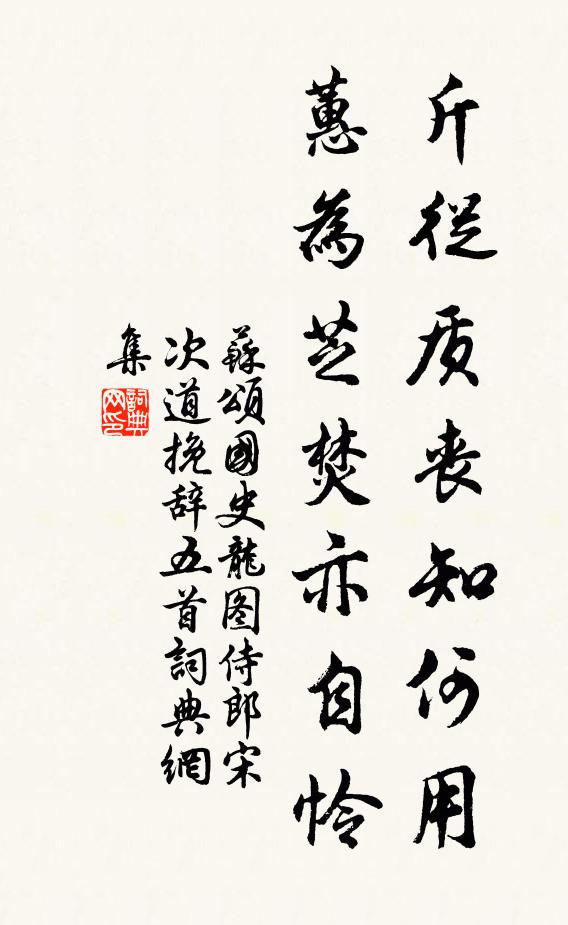 斤從质喪知何用
蕙為芝焚亦自怜
蘇頌國史龍图侍郎宋
次道挽辞五首詞典網
集
詞典
网印